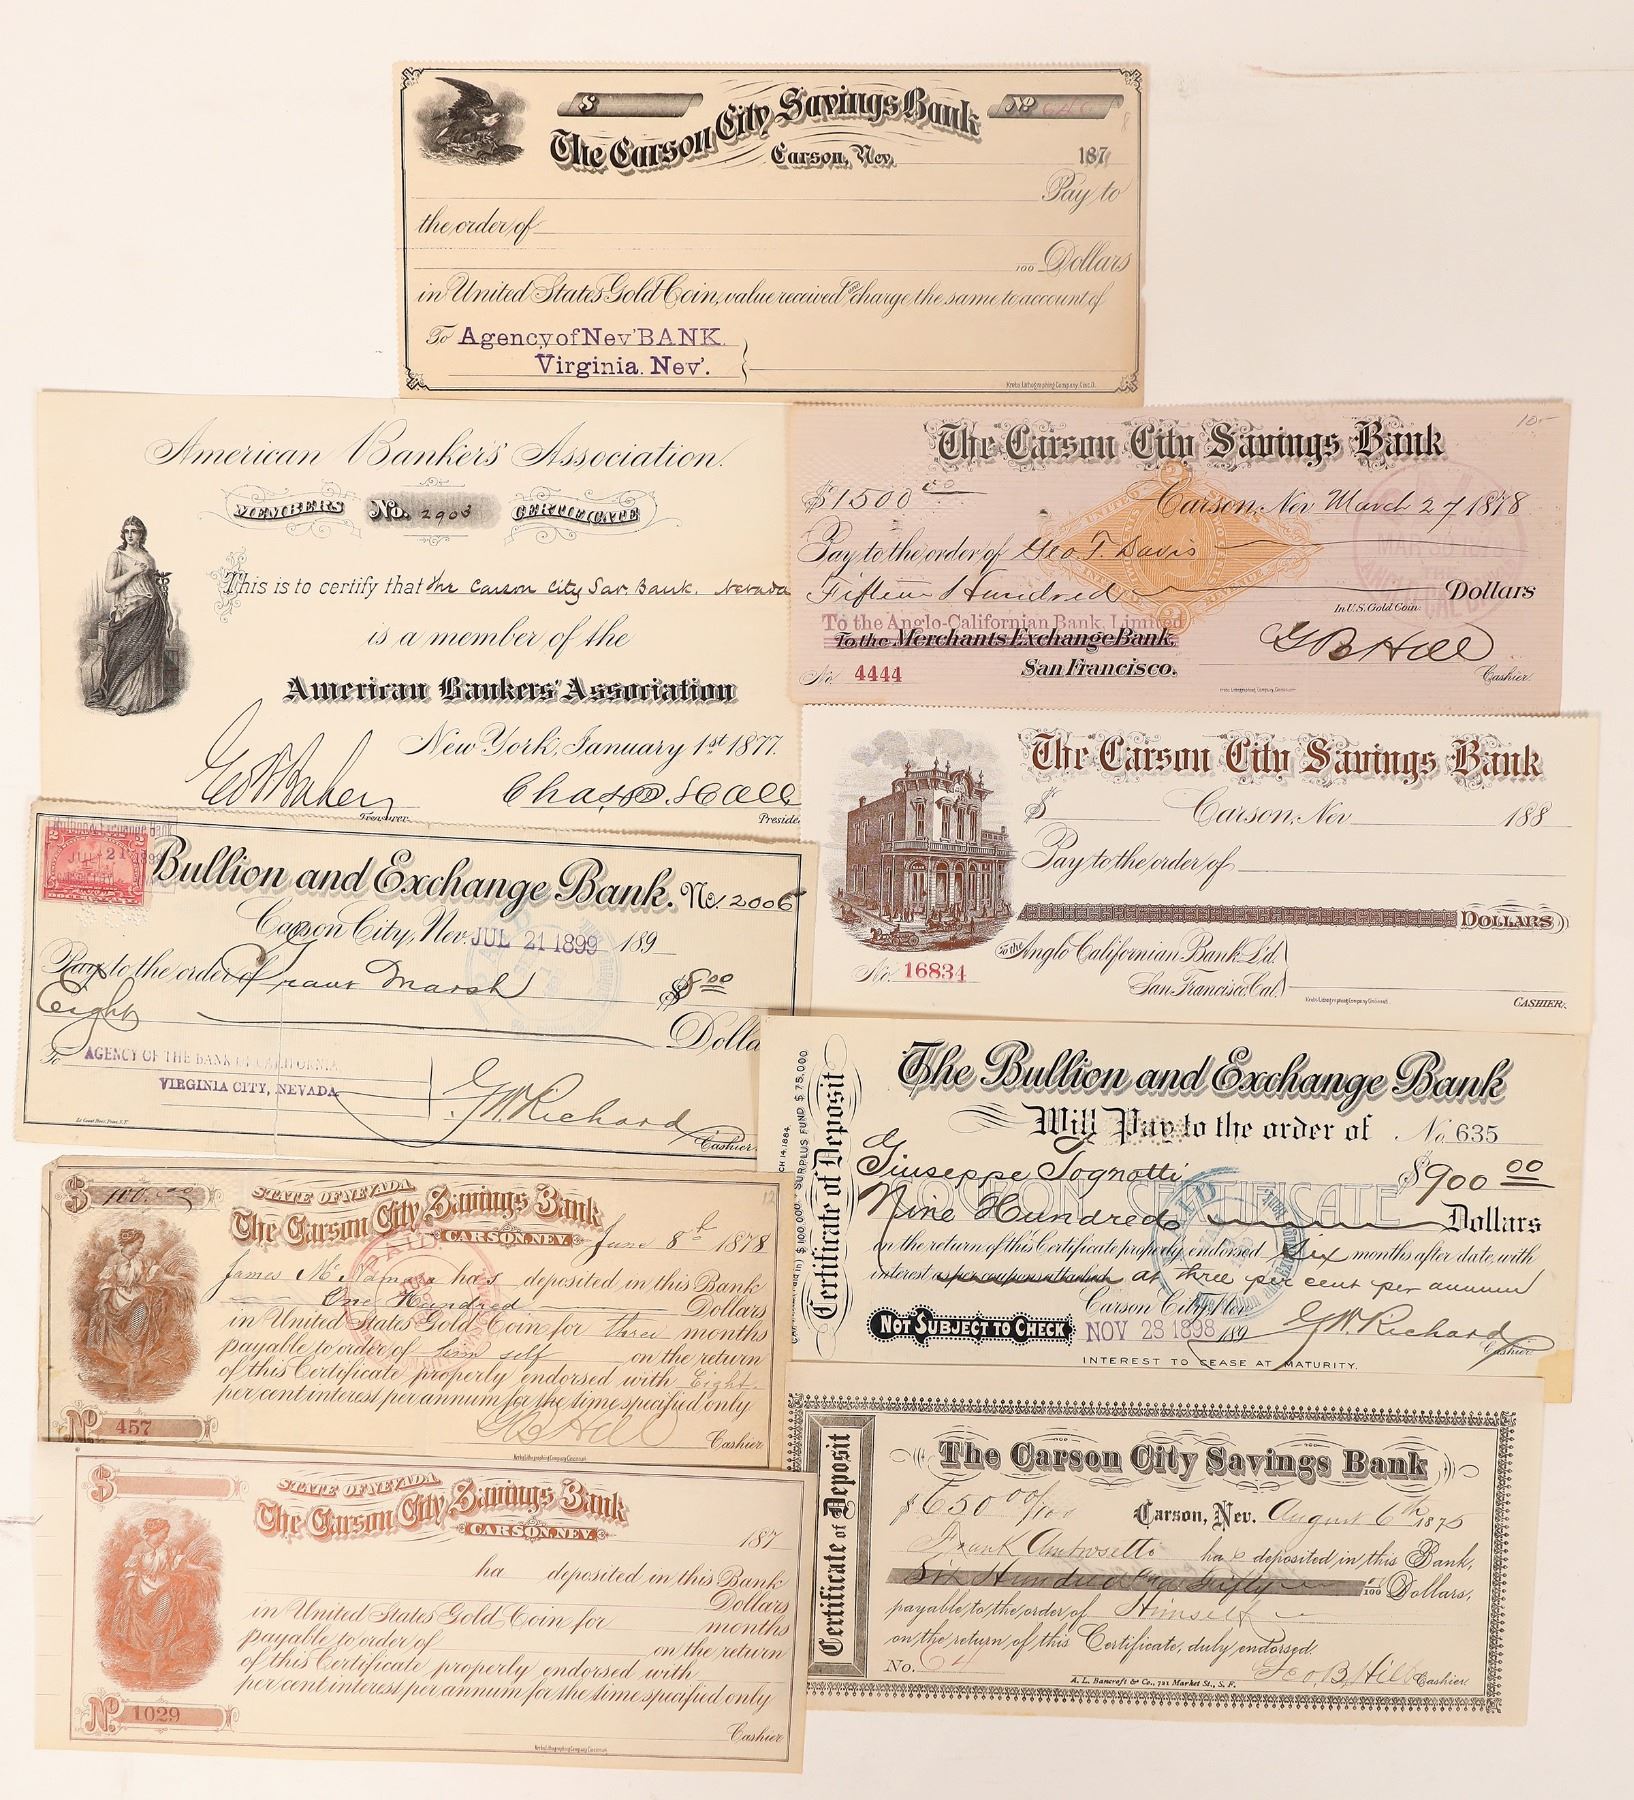 $
The Carson City Savings Bank
No 640
Carson, Nev. 187
Pay to
the order of
100 Dollars
in United States Gold Coin, value received and charge the same to account of
To Agency of Nev' BANK.
Virginia. Nev'.
Krebs Lithographing Company, Cin. O.
American Bankers' Association.
MEMBERS No. 2903 CERTIFICATE
This is to certify that the Carson City Sav. Bank. Nevada
is a member of the
American Bankers' Association
New York, January 1st 1877.
Treasurer.
Preside
The Carson City Savings Bank
10-
$1500 00
Carson, Nev March 27 1878
Pay to the order of Geo T. Davis
Fifteen Hundred Dollars
In U.S. Gold Coin.
To the Anglo-Californian Bank, Limited
To the Merchants Exchange Bank,
San Francisco.
No. 4444
G B Hill
Cashier.
Krebs Lithographing Company, Cincinnati
The Carson City Savings Bank
$ Carson, Nev 188
Pay to the order of
DOLLARS
To the Anglo Californian Bank Ld.
San Francisco, Cal.
No. 16834
Krebs Lithographing Company Cincinnati
CASHIER.
Bullion and Exchange Bank. No. 12006
Carson City, Nev. JUL 21 1899 189
Pay to the order of Frank Marsh $8.00
Eight Dolla
To AGENCY OF THE BANK OF CALIFORNIA
VIRGINIA CITY, NEVADA
G. W. Richard
Cashier
Certificate of Deposit
SURPLUS FUND $75,000.
The Bullion and Exchange Bank
Will Pay to the order of No 635
Giuseppe Tognotti $900 00
COUPON CERTIFICATE
Nine Hundred Dollars
on the return of this Certificate properly endorsed Six months after date, with
interest as per coupons attached at three per cent per annum
Carson City, Nev.
NOT SUBJECT TO CHECK NOV 28 1898 189 G. W. Richard
Cashier
INTEREST TO CEASE AT MATURITY.
$ 100.00
12
STATE OF NEVADA
The Carson City Savings Bank
CARSON, NEV. June 8th 1878
James McNamara has deposited in this Bank
One Hundred Dollars
in United States Gold Coin for three months
payable to order of him self on the return
of this Certificate properly endorsed with Eight
per cent interest per annum for the time specified only
No 457
G B Hill
Cashier
Krebs Lithographing Company Cincinnati
$
STATE OF NEVADA
The Carson City Savings Bank
CARSON, NEV.
187
ha deposited in this Bank
Dollars
in United States Gold Coin for months
payable to order of on the return
of this Certificate properly endorsed with
per cent interest per annum for the time specified only
No 1029
Cashier
Krebs Lithographing Company Cincinnati
Certificate of Deposit
The Carson City Savings Bank
$650 00/100 Carson, Nev. August 6th 1875
Frank Ambrosetti has deposited in this Bank,
Six Hundred and Fifty 100 Dollars,
payable to the order of Himself
on the return of this Certificate, duly endorsed.
No. 64 Geo B Hill Cashier
A. L. Bancroft & Co., 721 Market St., S. F.